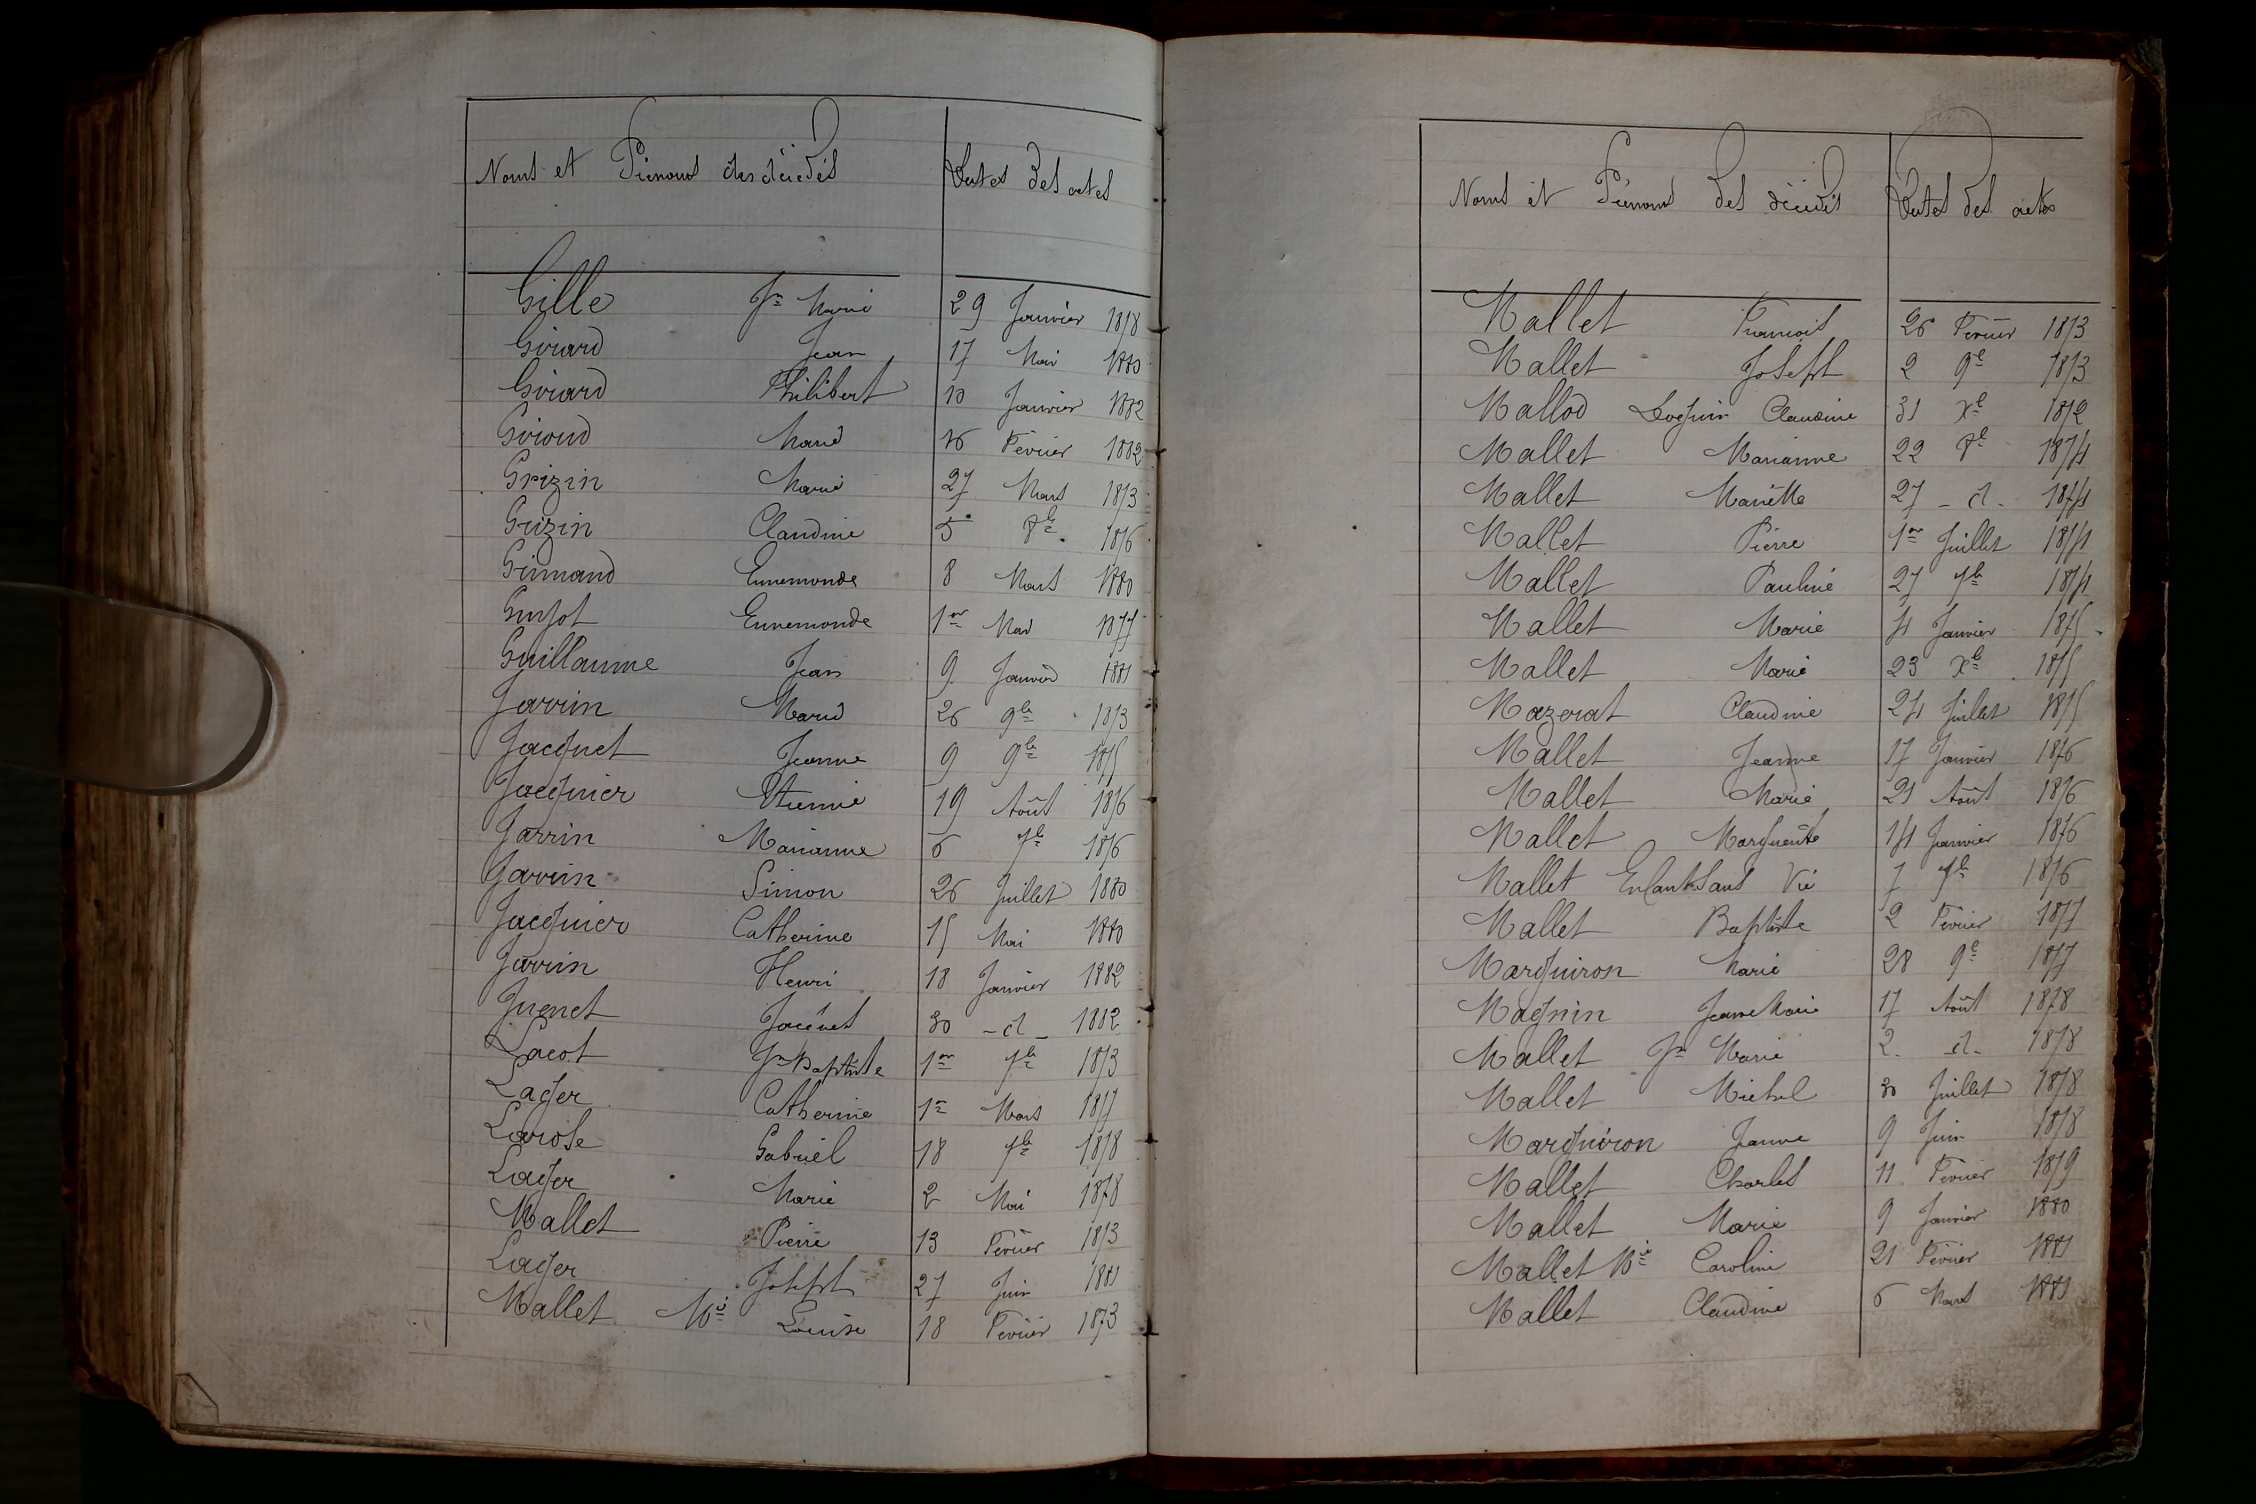 Noms et Prénoms des décédés Dates des actes
Gille Jn Marie 29 Janvier 1878
Girard Jean 17 Mai 1880
Girard Philibert 10 Janvier 1882
Giroud Marie 16 Février 1882
Grizin Marie 27 Mars 1873
Guzin Claudine 5 8be 1876
Ennemonde 8 Mars 1880
Guyot Ennemonde 1er Mai 1877
Guillaume Jean 9 Janvier 1881
Jarrin Marie 26 9be 1873
Jacquet Jeanne 9 9be 1875
Jacquier Etienne 19 Août 1876
Jarrin Marianne 6 7be 1876
Jarrin Simon 26 Juillet 1880
Jacquier Catherine 15 Mai 1880
Jarrin Henri 18 Janvier 1882
Juenet Jacques 30 - d - 1882
Lacot Jn Baptiste 1er 7be 1873
Lager Catherine 1er Mars 1877
Larose Gabriel 18 7be 1878
Lager Marie 2 Mai 1878
Mallet Pierre 13 Février 1873
Lager Joseph 27 Juin 1881
Mallet Mie Louise 18 Février 1873
Noms et Prénoms des décédés Dates des actes
Mallet François 26 Février 1873
Mallet Joseph 2 9e 1873
Mallod Claudine 31 Xe 1872
Mallet Marianne 22 8e 1874
Mallet Mariette 27 - d - 1874
Mallet Pierre 1er Juillet 1874
Mallet Pauline 27 7be 1874
Mallet Marie 4 Janvier 1875
Mallet Marie 23 Xbe 1875
Mazerat Claudine 24 Juillet 1875
Mallet Jeanne 17 Janvier 1876
Mallet Marie 21 Août 1876
Mallet Marguerite 14 Janvier 1876
Mallet Enfant Sans Vie 7 7be 1876
Mallet Baptiste 2 Février 1877
Marguiron Marie 28 9e 1877
Magnin Jeanne Marie 17 Août 1878
Mallet Jn Marie 2 - d - 1878
Mallet Michel 30 Juillet 1878
Marguiron Jeanne 9 Juin 1878
Mallet Charles 11 Février 1879
Mallet Marie 9 Janvier 1880
Mallet Mie Caroline 21 Février 1881
Mallet Claudine 6 Mars 1881